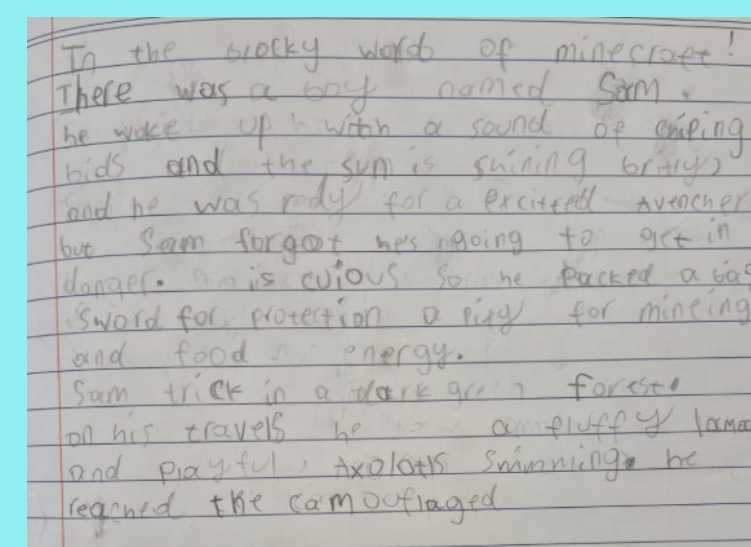 In the blocky world of minecraft!
There was a boy named Sam.
he woke up with a sound of chiping
bids and the sum is shining britly,
and he was rody for a excitted Avencher
but Sam forgot hes going to get in
danger. is cuious so he packed a bag
Sword for protection a for mineing
and food energy.
Sam trick in a dark green forest.
on his travels he fluffy
and playful, Axolotls Swimming. he
reached the camouflaged